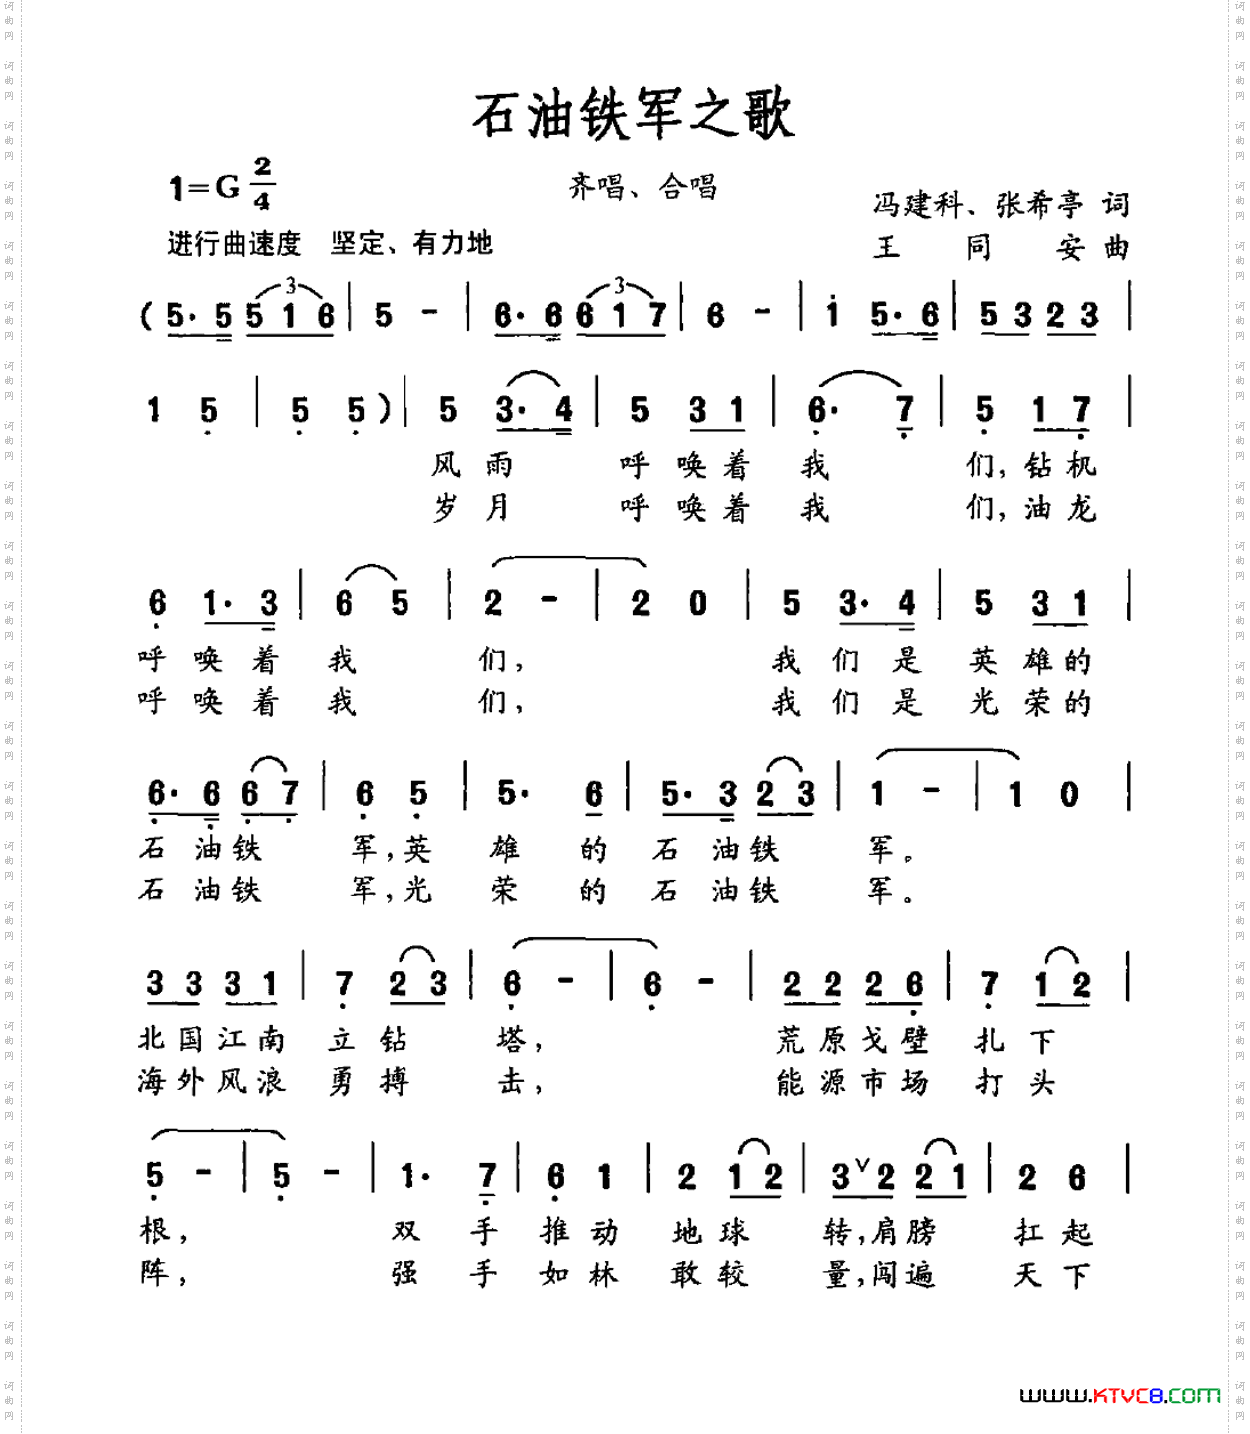 石油铁军之歌
1=G 2/4
齐唱、合唱
冯建科、张希亭 词
进行曲速度 坚定、有力地
王同安曲
( 5· 5 5 1 6 | 5 - | 6· 6 6 1 7 | 6 - | i 5· 6 | 5 3 2 3 |
3 3
1 5 | 5 5 ) | 5 3· 4 | 5 3 1 | 6· 7 | 5 1 7 |
风雨 呼唤着 我 们,钻机
岁月 呼唤着 我 们,油龙
6 1· 3 | 6 5 | 2 - | 2 0 | 5 3· 4 | 5 3 1 |
呼唤着 我 们, 我们是 英雄的
呼唤着 我 们, 我们是 光荣的
6· 6 6 7 | 6 5 | 5· 6 | 5· 3 2 3 | 1 - | 1 0 |
石油铁 军,英 雄 的 石油铁 军。
石油铁 军,光 荣 的 石油铁 军。
3 3 3 1 | 7 2 3 | 6 - | 6 - | 2 2 2 6 | 7 1 2 |
北国江南 立钻 塔, 荒原戈壁 扎下
海外风浪 勇搏 击, 能源市场 打头
5 - | 5 - | 1· 7 | 6 1 | 2 1 2 | 3 ∨ 2 2 1 | 2 6 |
根, 双 手 推动 地球 转,肩膀 扛起
阵, 强 手 如林 敢较 量,闯遍 天下
www.KTVC8.COM
词曲网